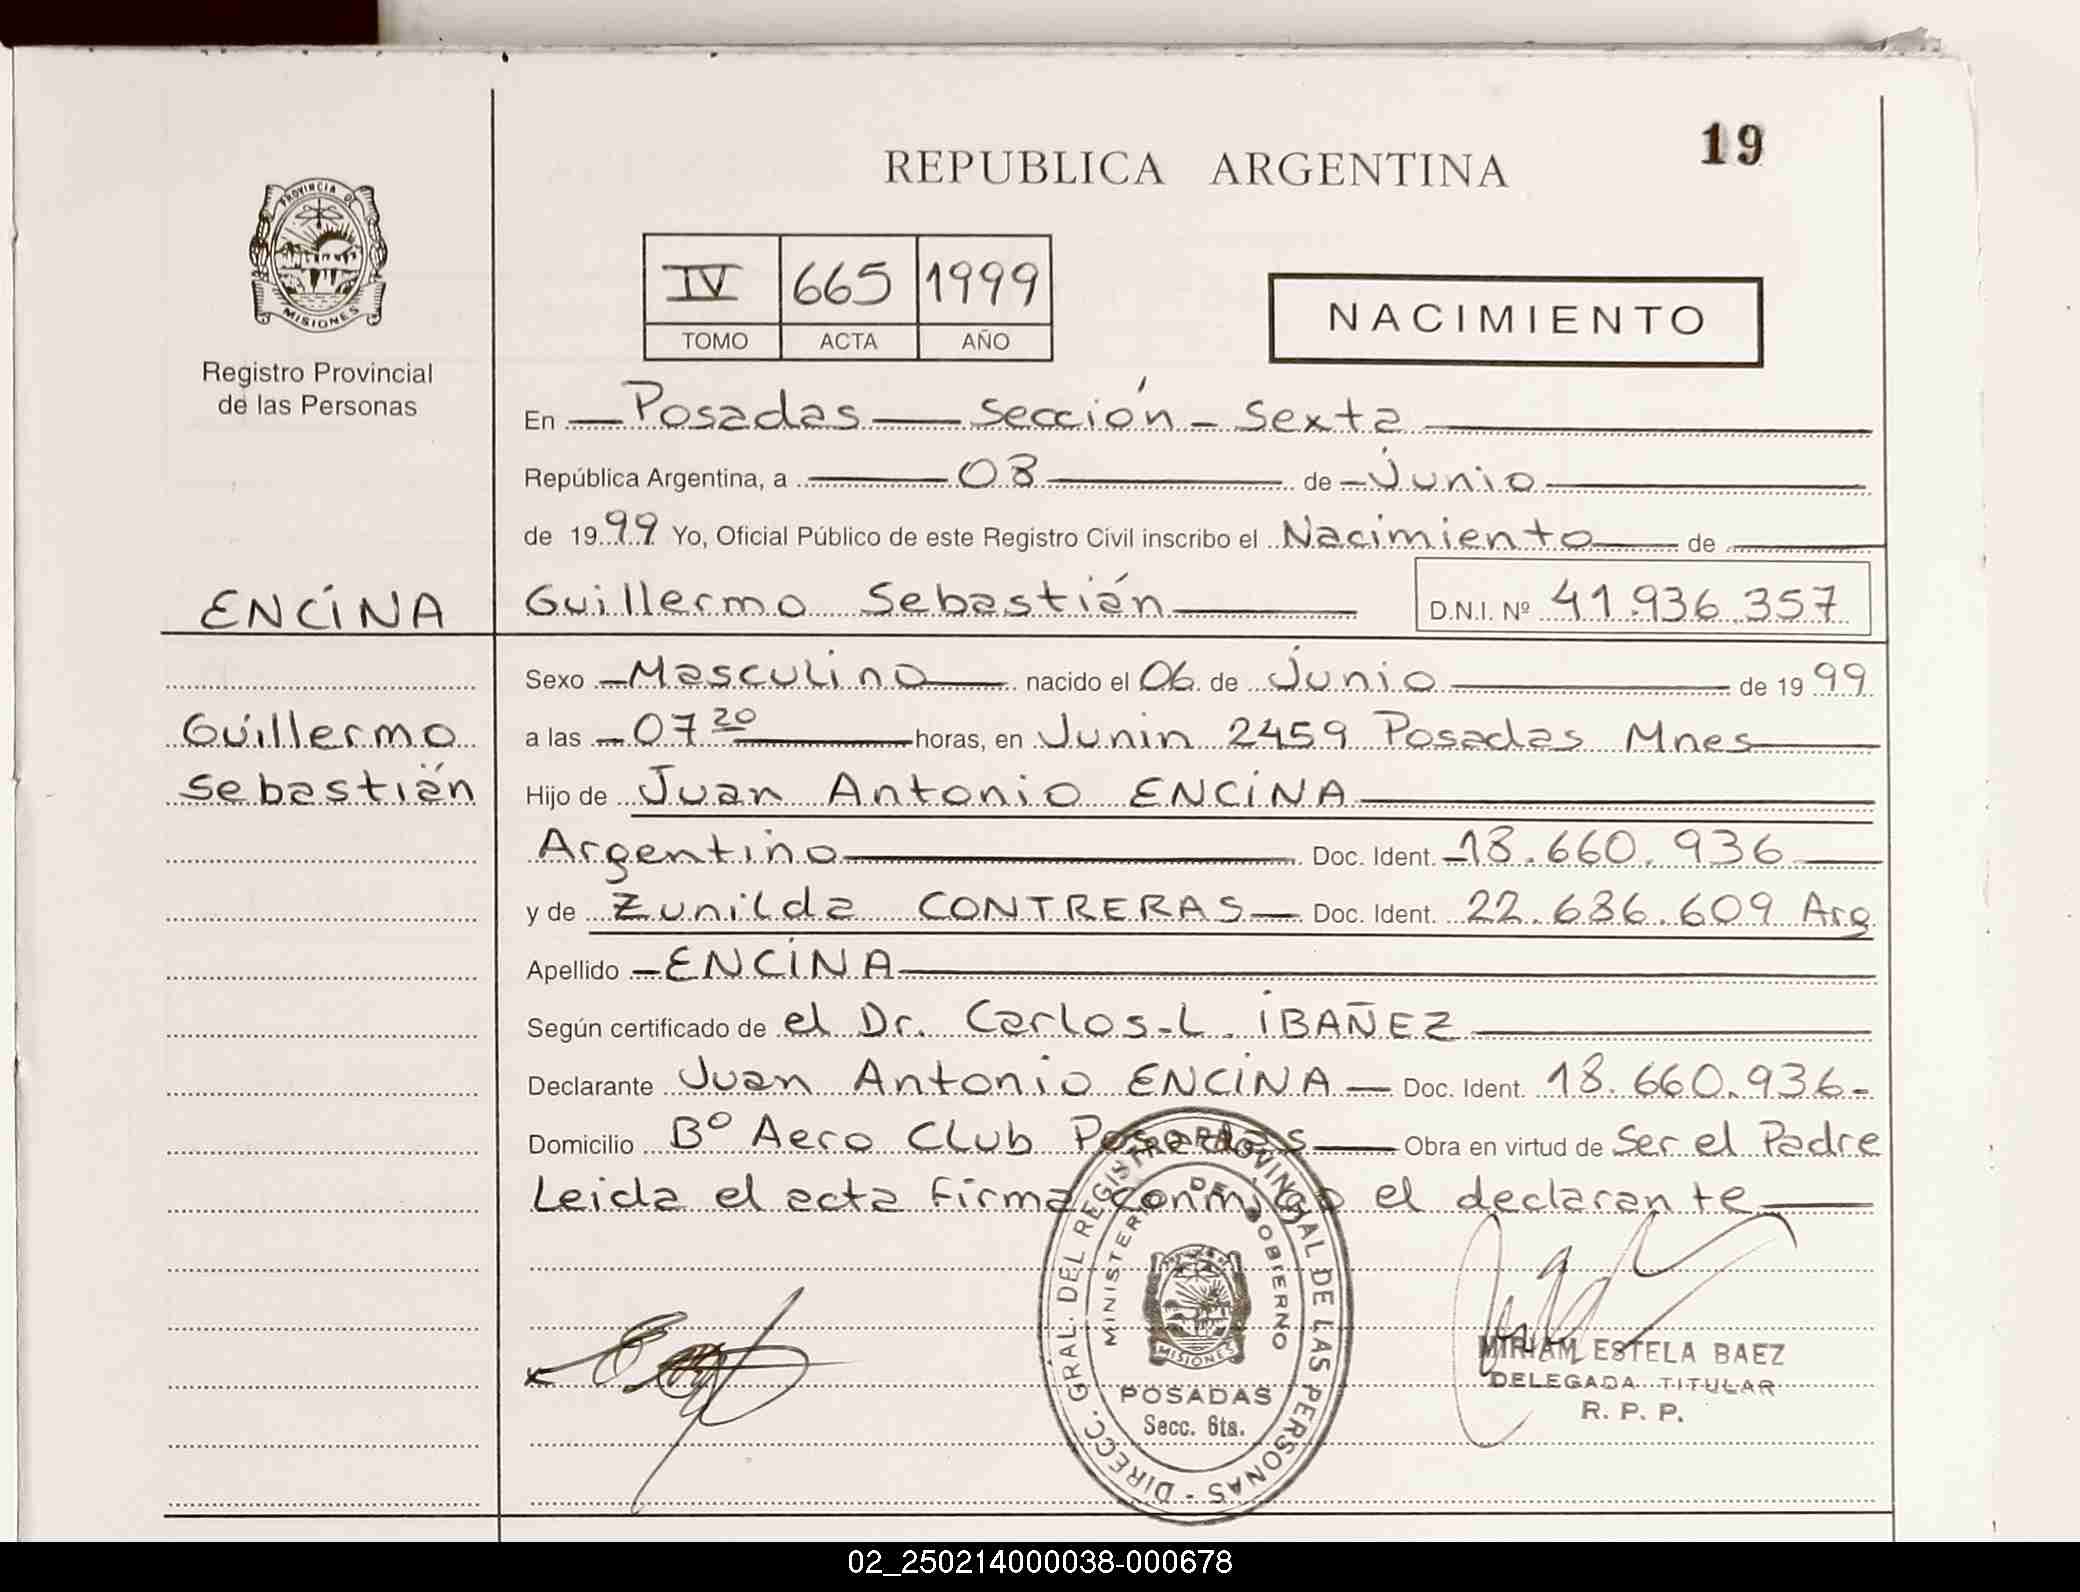 19
REPUBLICA ARGENTINA
PROVINCIA DE
MISIONES
Registro Provincial
de las Personas
IV 665 1999
TOMO ACTA AÑO
NACIMIENTO
En Posadas sección - Sexta
República Argentina, a 08 de Junio
de 1999 Yo, Oficial Público de este Registro Civil inscribo el Nacimiento de
ENCINA
Guillermo Sebastián D.N.I. Nº 41.936.357
Sexo Masculino nacido el 06 de Junio de 1999
Guillermo
Sebastián
a las 07 20 horas, en Junin 2459 Posadas Mnes
Hijo de Juan Antonio ENCINA
Argentino Doc. Ident. 18.660.936
y de Zunilda CONTRERAS Doc. Ident. 22.686.609 Arg
Apellido ENCINA
Según certificado de el Dr. Carlos.L. IBAÑEZ
Declarante Juan Antonio ENCINA Doc. Ident. 18.660.936-
Domicilio Bº Aero Club Posadas Obra en virtud de Ser el Padre
Leida el acta Firma conmigo el declarante
DIRECC. GRAL. DEL REGISTRO PROVINCIAL DE LAS PERSONAS -
MINISTERIO DE GOBIERNO
MISIONES
POSADAS
Secc. 6ta.
MIRIAM ESTELA BAEZ
DELEGADA TITULAR
R. P. P.
02_250214000038-000678